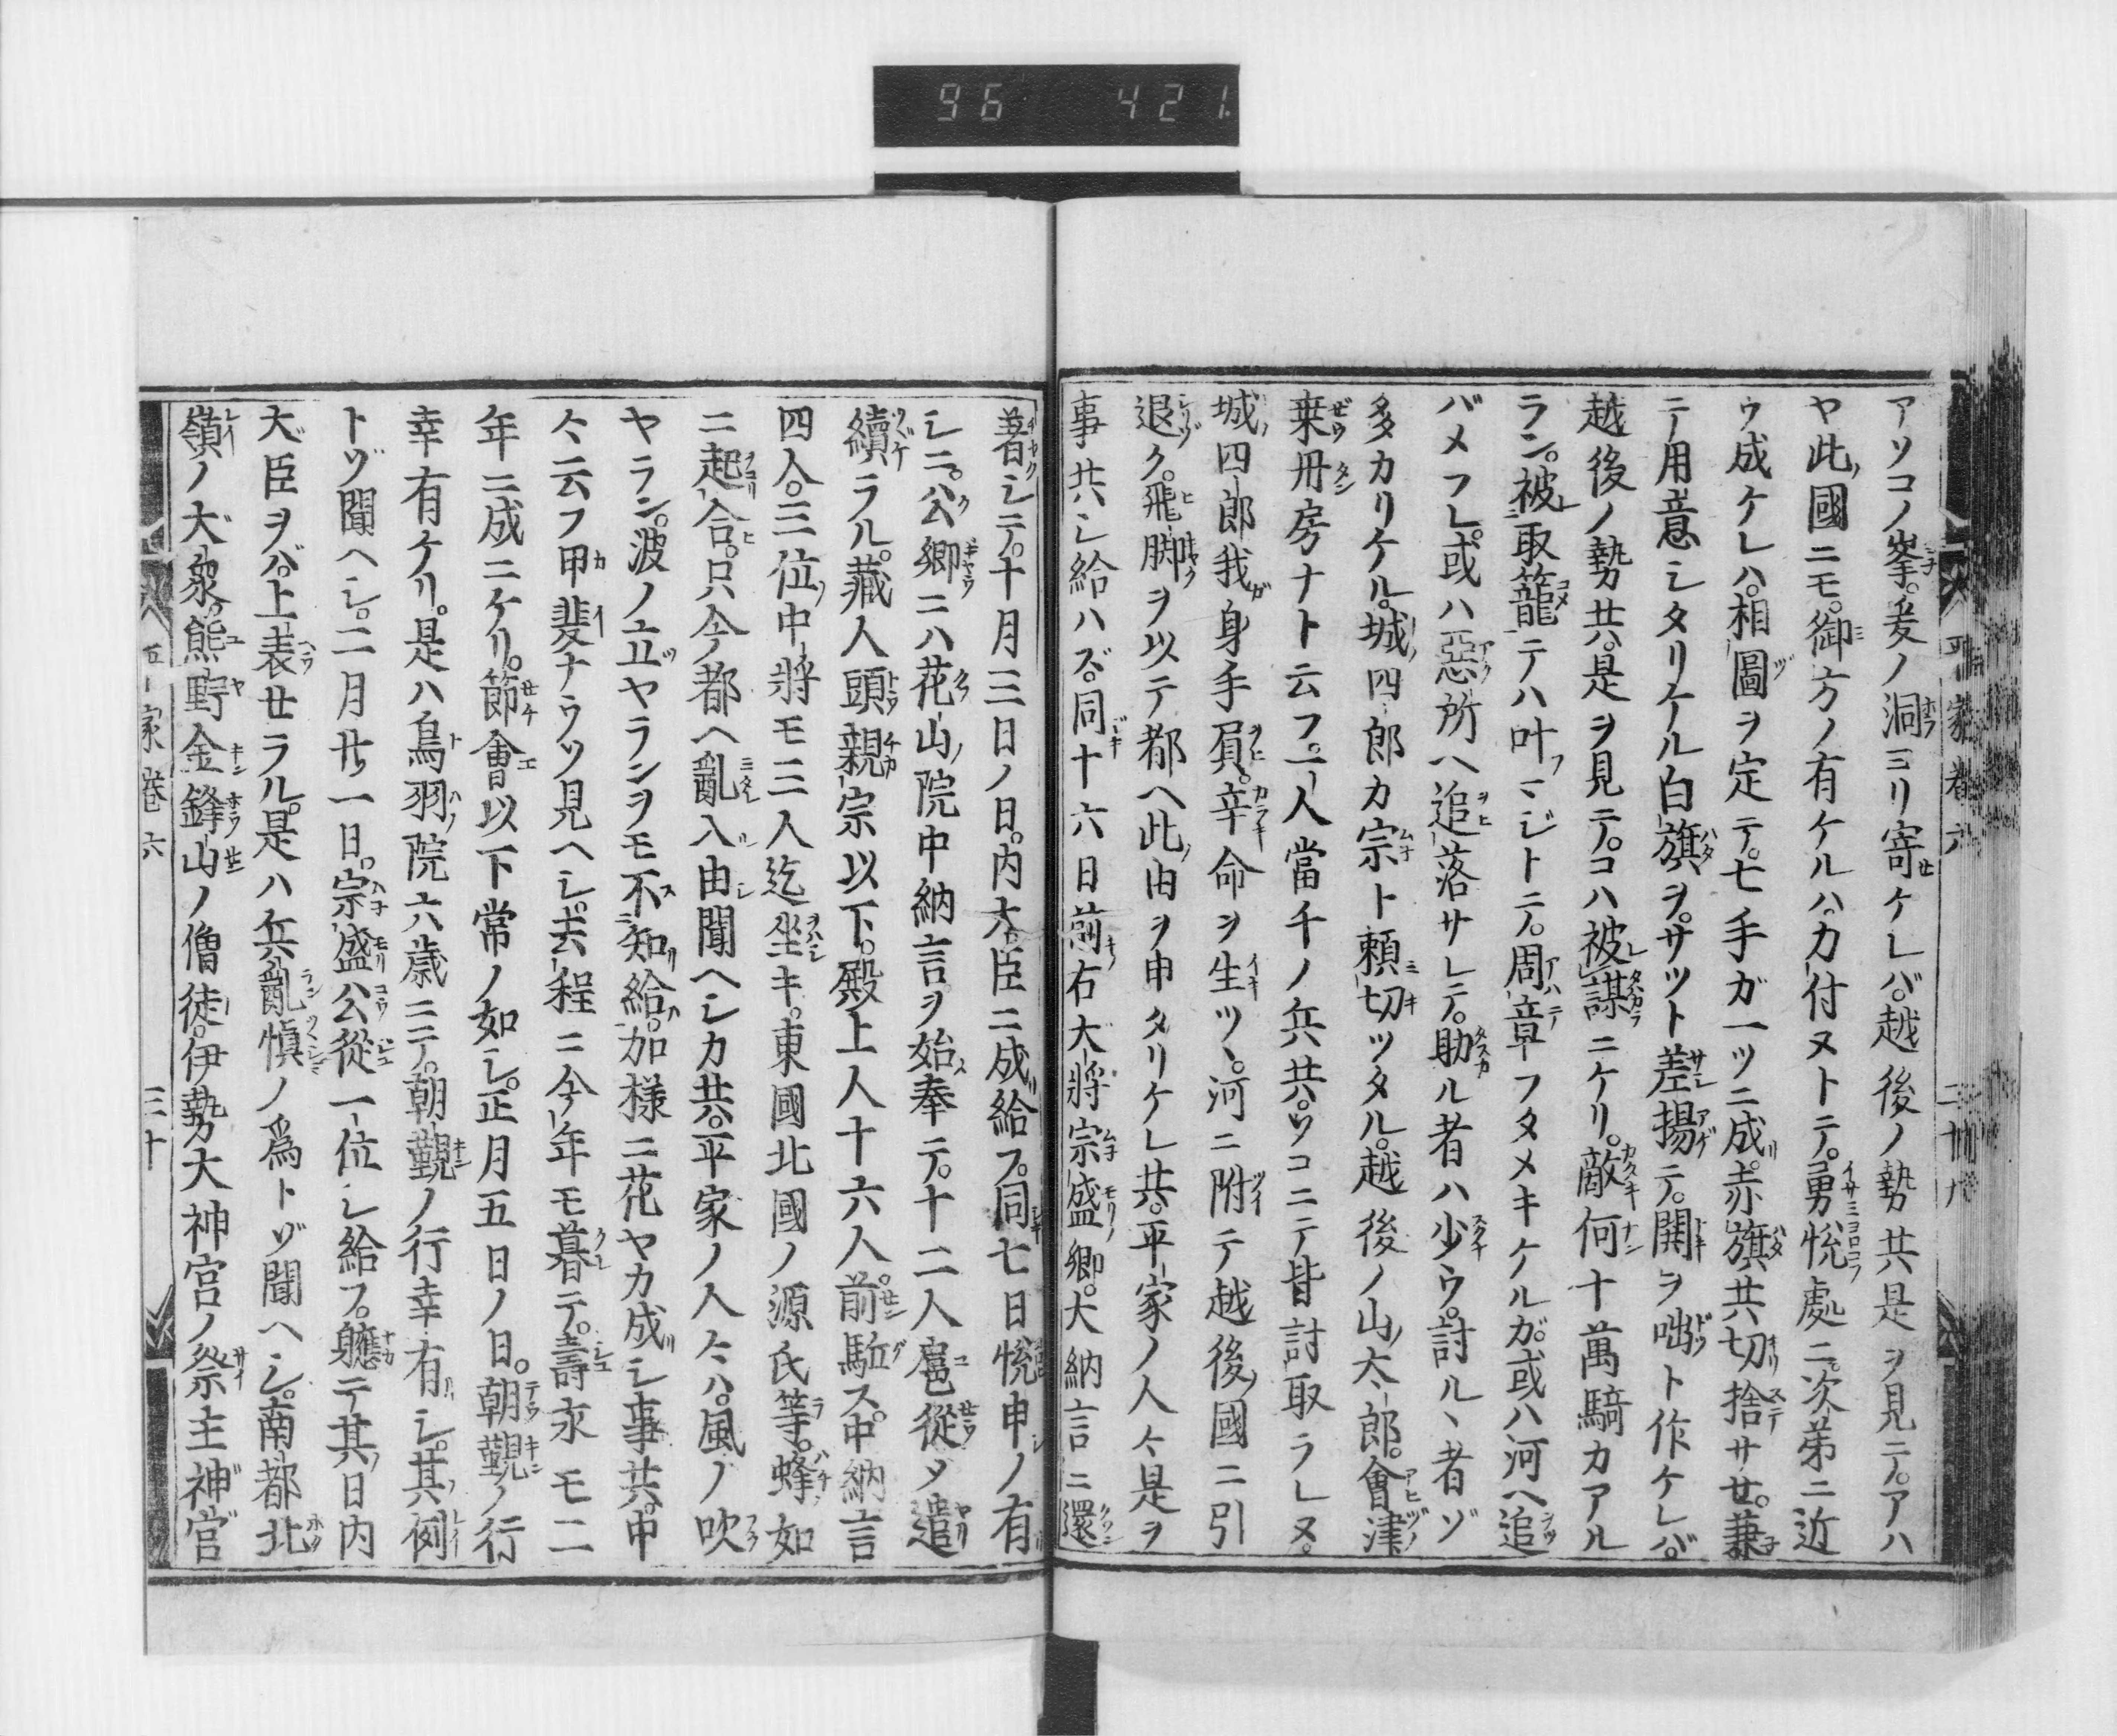 96 421.
アソコノ峯。爰ノ洞ヨリ寄ケレバ。越後ノ勢共是ヲ見テ。アハ
ヤ此國ニモ。御方ノ有ケルハ。力付ヌトテ。勇悅處ニ。次第ニ近
ウ成ケレハ。相圖ヲ定テ。七手ガ一ツニ成。赤旗共切捨サセ。兼
テ用意シタリケル白旗ヲ。サツト差揚テ。鬨ヲ咄ト作ケレバ。
越後ノ勢共。是ヲ見テ。コハ被謀ニケリ。敵何十萬騎カアル
ラン。被取籠テハ叶マジトテ。周章フタメキケルガ。或ハ河ヘ追
バメフレ。或ハ惡所ヘ追落サレテ。助ル者ハ少ウ。討ルヽ者ゾ
多カリケル。城四郎カ宗ト頼切ツタル。越後ノ山ノ太郎。會津ノ
乗丹房ナト云フ。一人當千ノ兵共。ソコニテ皆討取ラレヌ。
城四郎我身手負。辛命ヲ生ツヽ。河ニ附テ越後國ニ引
退ク。飛脚ヲ以テ都ヘ此由ヲ申タリケレ共。平家ノ人々是ヲ
事共シ給ハズ。同十六日前右大將宗盛卿。大納言ニ還
著シテ。十月三日ノ日。内大臣ニ成給フ。同七日悅申ノ有
シニ。公卿ニハ花山院中納言ヲ始奉テ。十二人扈從メ遣
續ラル。藏人頭親宗以下。殿上人十六人。前駈ス。中納言
四人。三位中將モ三人迄坐キ。東國北國ノ源氏等。蜂如
ニ起合。只今都ヘ亂入由聞ヘシカ共。平家ノ人々ハ。風ノ吹
ヤラン。波ノ立ヤランヲモ不知給。加様ニ花ヤカ成シ事共。中
々云フ甲斐ナウソ見ヘシ。去程ニ今年モ暮テ。壽永モ二
年ニ成ニケリ。節會以下常ノ如シ。正月五日ノ日。朝覲ノ行
幸有ケリ。是ハ鳥羽院六歳ニテ。朝覲ノ行幸有シ。其例
トゾ聞ヘシ。二月廿一日。宗盛公從一位シ給フ。軈テ其日内
大臣ヲバ。上表セラル。是ハ兵亂愼ノ爲トゾ聞ヘシ。南都北
嶺ノ大衆。熊野金鋒山ノ僧徒。伊勢大神宮ノ祭主神官
家卷六 三十